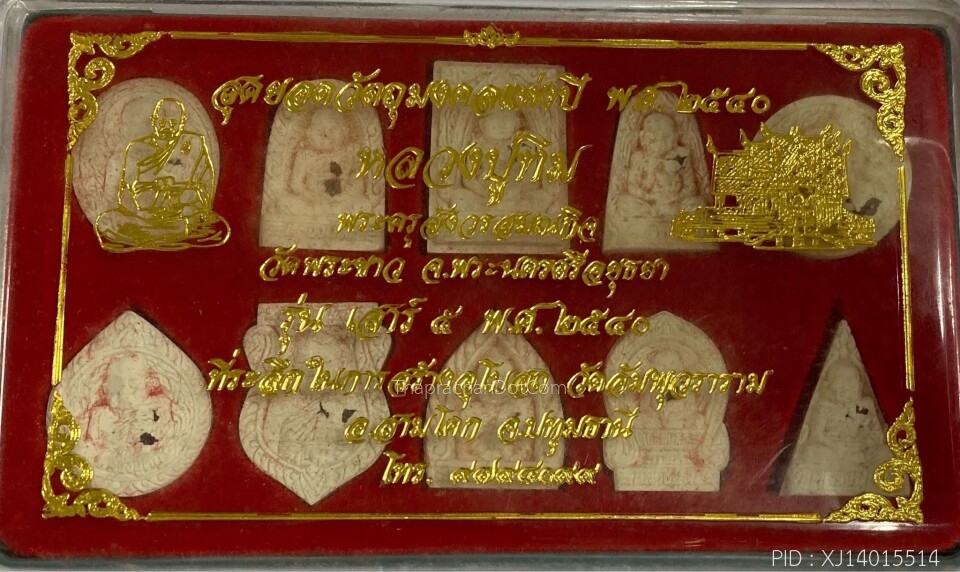 สุดยอดวัตถุมงคลแห่งปี พ.ศ. ๒๕๔๐
หลวงปู่ทิม
พระครูสังวรสมณกิจ
วัดพระขาว จ.พระนครศรีอยุธยา
รุ่น เสาร์ ๕ พ.ศ. ๒๕๔๐
ที่ระลึกในการสร้างอุโบสถ วัดอัมพุวราราม
อ.สามโคก จ.ปทุมธานี
โทร.
ThaprachanDotCom
PID : XJ14015514